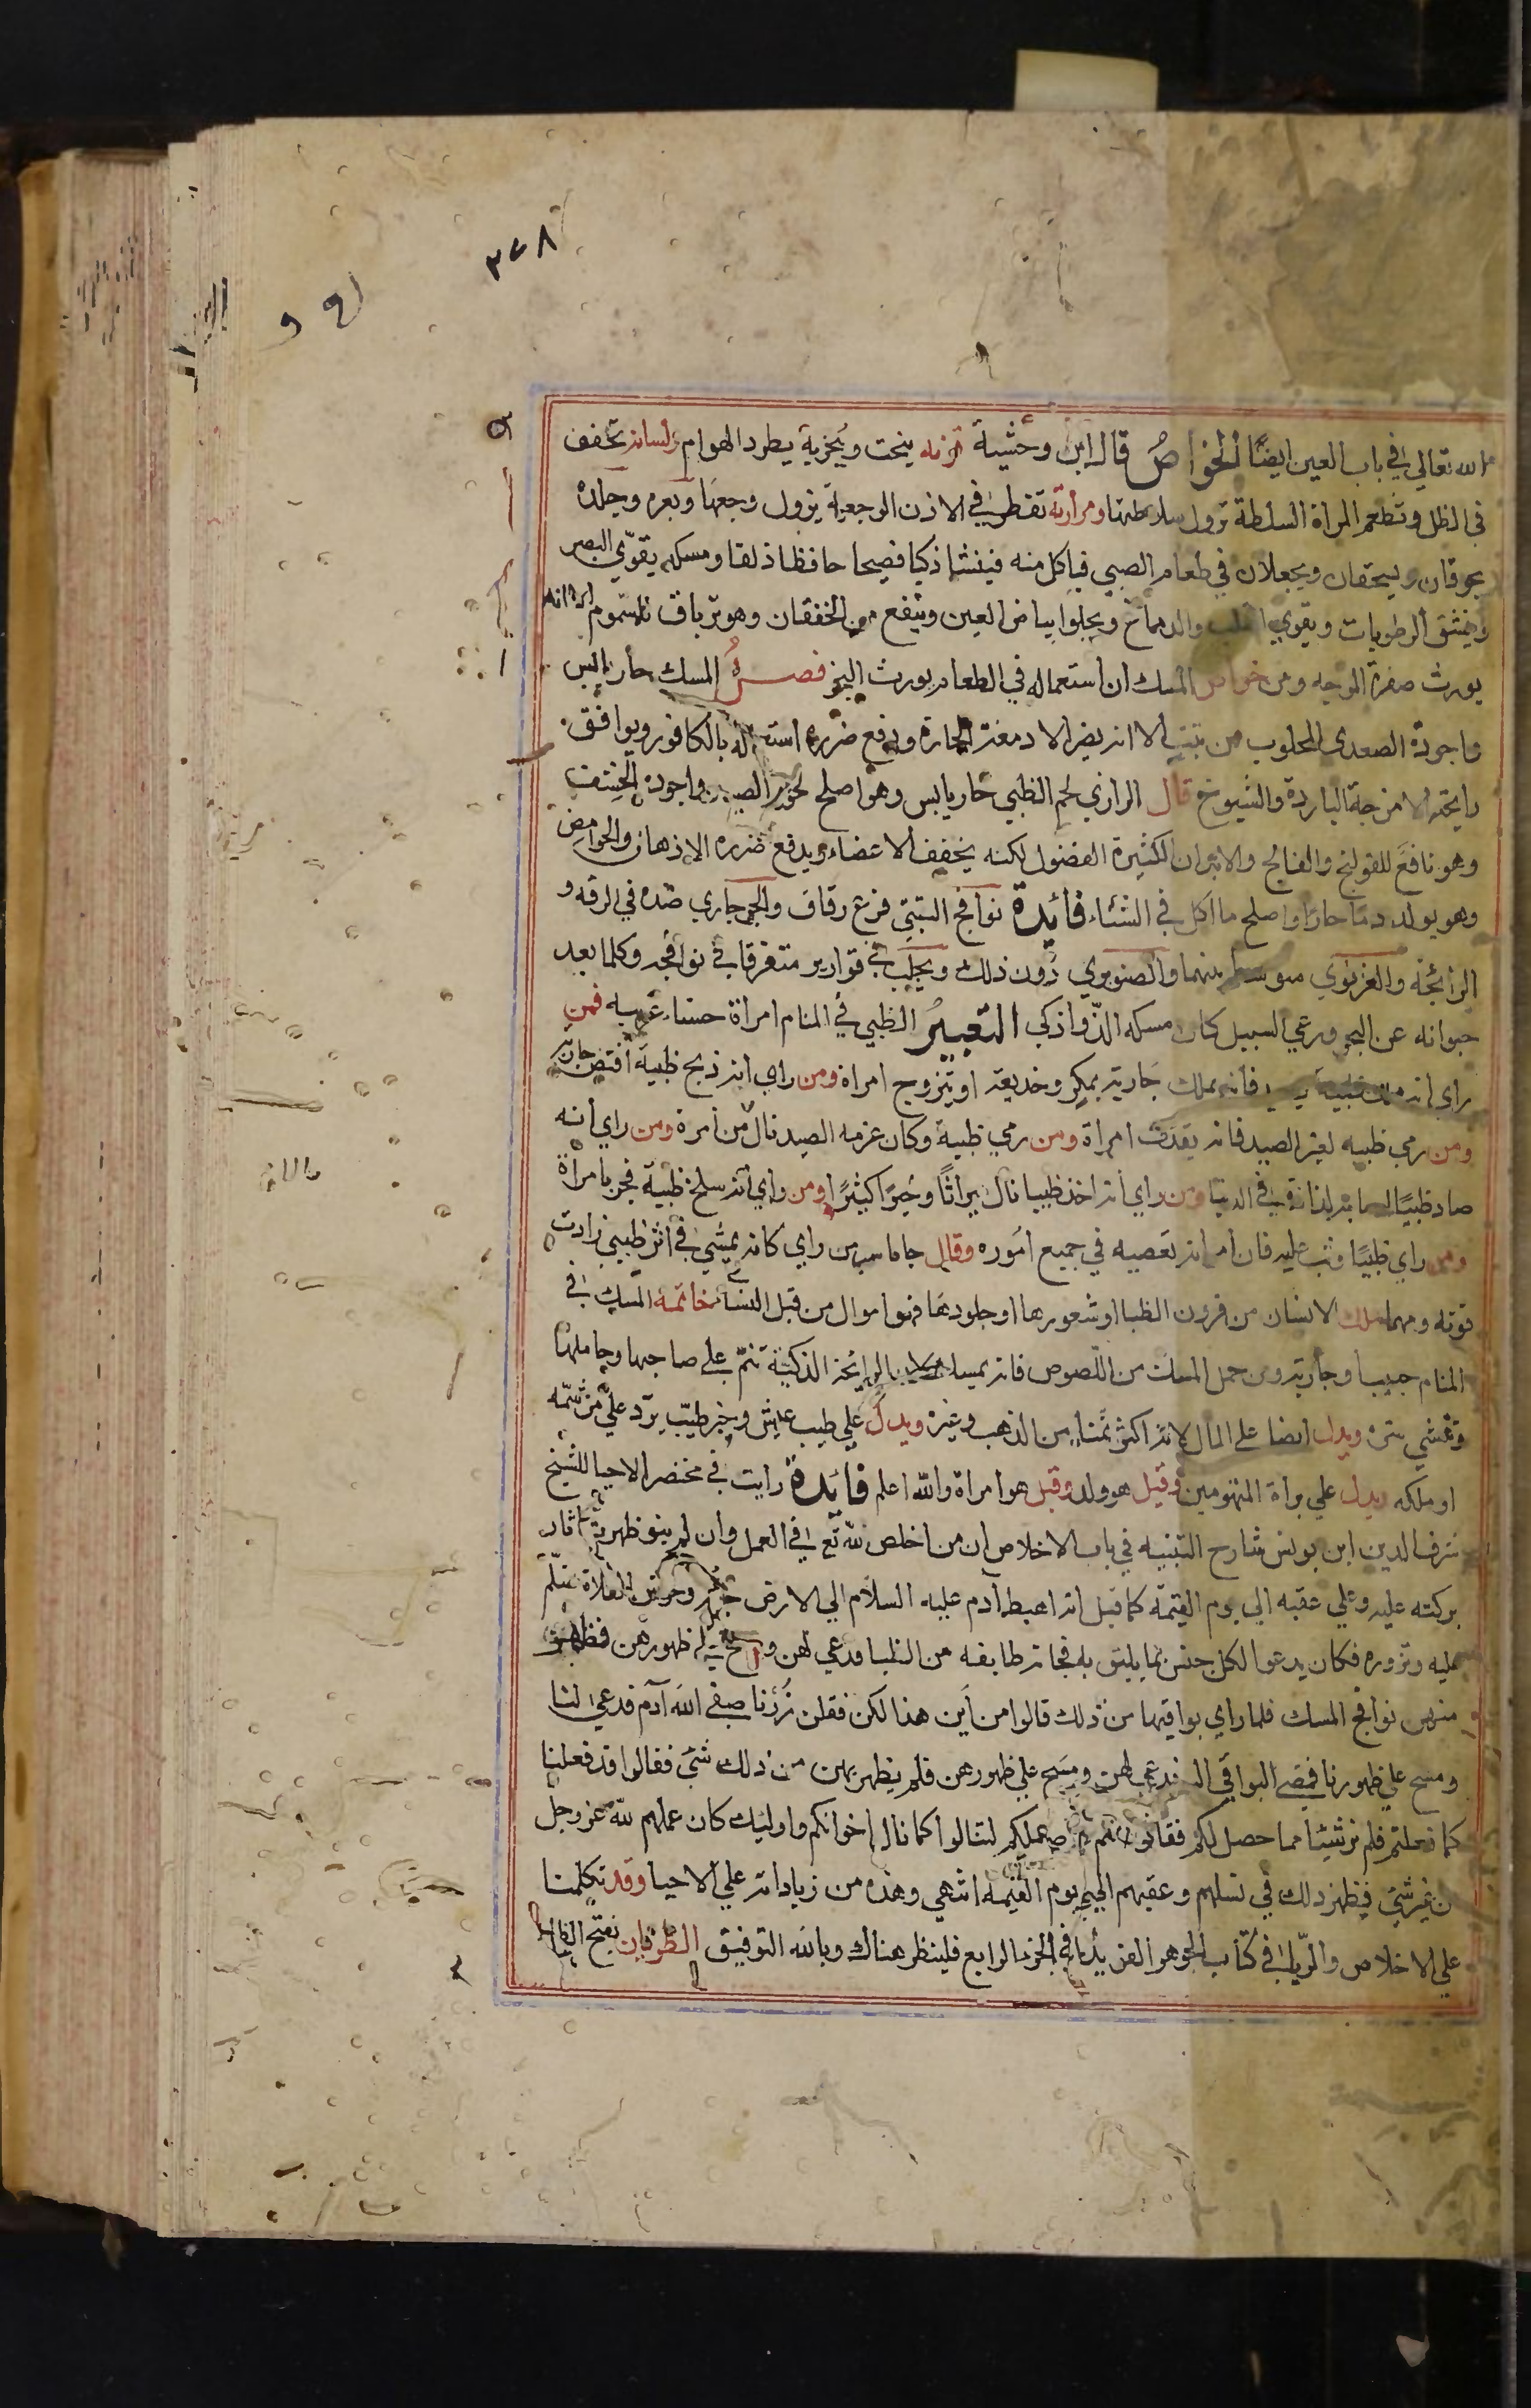 ٣٧٨
الله تعالى في باب العين ايضًا الخواصُ قال ابن وحشية قرنه ينحت ويبخربه يطرد الهوام ولسانه يخفف
في الظل وتطعم المراة السلطة تزول سلاطتها ومرارته تقطر في الاذن الوجعة يزول وجعها وبعره وجلده
يحرقان ويسحقان ويجعلان في طعام الصبي فياكل منه فينشا ذكيا فصيحا حافظا ذلقا ومسكه يقوّي البصر
وينشق الرطوبات ويقوي القلب والدماغ ويجلوا بياض العين وينفع من الخفقان وهو ترياق للسموم الا انه
يورث صفرة الوجه ومن خواص المسك ان استعماله في الطعام يورث البخر فصــل المسك حار يابس
واجودة الصعدي المجلوب من تبت الا انه يضر الادمغة الحارة ويدفع ضرره استعماله بالكافور ويوافق
رايحته الامزجة الباردة والشيوخ قال الرازي لحم الظبي حار يابس وهو اصلح لحوم الصيد واجوده الخشف
وهو نافع للقولنج والفالج والابدان الكثيرة الفضول لكنه يخفف الاعضاء ويدفع ضرره الادهان والحوامض
وهو يولد دمًا حارًا واصلح ما اكل في الشتاء فائدة نوافج التبتي فرع رقاق والجرجاري ضده في الرقه و
الرائحة والغزنوي متوسط بينهما والصنوبري دون ذلك ويجلب في قوارير متفرقا في نوافجه وكلما بعد
حيوانه عن البحر ورعي السبيل كان مسكه الذّ واذكى التعبيرُ الظبي في المنام امراة حسناء عربيه فمن
راي انه ملك ظبية بصيد فانه يملك جارية بمكر وخديعة او يتزوج امراة ومن راي انه ذبح ظبية افتض جارية
ومن رمي ظبيه لغير الصيد فانه يقذف امراة ومن رمي ظبية وكان عزمه الصيد نال من امرة ومن راي انه
صاد ظبيًا اصابته لذاذة في الدنيا ومن راي انه اخذ ظبيا نال ميراثًا وخيرًا كثيرًا ومن راي انه سلخ ظبية فجر بامراة
ومن راي ظبيًا وثب عليه فان امراته تعصيه في جميع اموره وقال جاماسب من راي كانه يمشي في اثر ظبي زادت
قوته ومهما ملك الانسان من قرون الظبا او شعورها او جلودها فهو اموال من قبل النساء خاتمة المسك في
المنام حبيب او جارية ومن حمل المسك من اللّصوص فانه يمسك لان الرائحة الذكية تنمّ على صاحبها وحاملها
وتفشي سره ويدل ايضا على المال لانه اكثر ثمنًا من الذهب وغيره ويدل علي طيب عيش وخبر طيب يرد علي من شمّه
او ملكه ويدل علي براة المتهومين وقيل هو ولد وقيل هو امراة والله اعلم فائدة رايت في مختصر الاحيا للشيخ
شرف الدين ابن يونس شارح التنبيه في باب الاخلاص ان من اخلص لله تع في العمل وان لم ينو ظهرت اثار
بركته عليه وعلي عقبه الي يوم القيمة كما قيل انه اهبط آدم عليه السلام الي الارض جاته وحوش الفلاة تسلّم
عليه وتزوره فكان يدعوا لكل جنس بما يليق به فجاته طايفه من الظبا فدعي لهن ومسح علي ظهورهن فظهرت
منهن نوافج المسك فلما راي بواقيها من ذلك قالوا من اين هذا لكن فقلن زرنا صفي الله آدم فدعي لنا
ومسح علي ظهورنا فمضي البواقي اليه فدعي لهن ومسح علي ظهورهن فلم يظهر بهن من ذلك شيَ فقالوا قد فعلنا
كما فعلتم فلم نر شيئًا مما حصل لكم فقالوا انتم كان عملكم لتنالوا كما نال اخوانكم واوليك كان عملهم لله عز وجل
من غير شي فيظهر ذلك في نسلهم وعقبهم الي يوم القيمه انتهي وهذه من زياداته علي الاحيا وقد تكلمنا
علي الاخلاص والريا في كتاب الجوهر الفريد في الجزء الرابع فلينظر هناك وبالله التوفيق الظربان بفتح الظاء